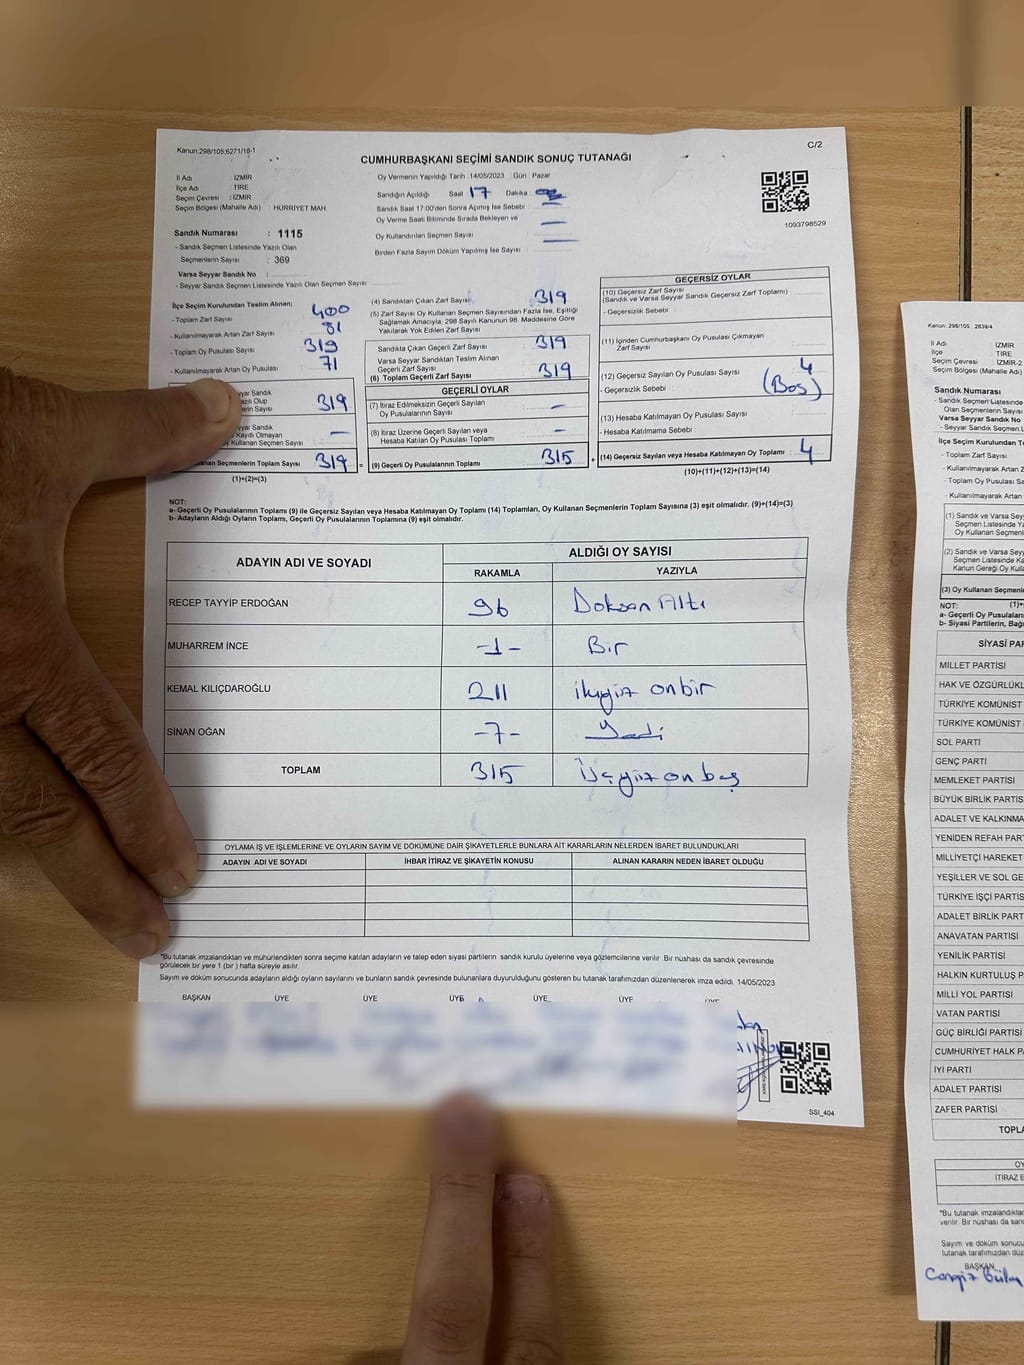 Kanun:298/105;6271/18-1
C/2
CUMHURBAŞKANI SEÇİMİ SANDIK SONUÇ TUTANAĞI
İl Adı : İZMİR
İlçe Adı : TİRE
Seçim Çevresi : İZMİR
Seçim Bölgesi (Mahalle Adı) : HÜRRİYET MAH.
Sandık Numarası : 1115
- Sandık Seçmen Listesinde Yazılı Olan
Seçmenlerin Sayısı : 369
Varsa Seyyar Sandık No :
- Seyyar Sandık Seçmen Listesinde Yazılı Olan Seçmen Sayısı :
Oy Vermenin Yapıldığı Tarih :14/05/2023 Gün : Pazar
Sandığın Açıldığı Saat : 17 Dakika :
Sandık Saat 17:00'den Sonra Açılmış İse Sebebi :
Oy Verme Saati Bitiminde Sırada Bekleyen ve
Oy Kullandırılan Seçmen Sayısı
Birden Fazla Sayım Döküm Yapılmış İse Sayısı :
1093798529
İlçe Seçim Kurulundan Teslim Alınan;
- Toplam Zarf Sayısı 400
- Kullanılmayarak Artan Zarf Sayısı 81
- Toplam Oy Pusulası Sayısı 319
- Kullanılmayarak Artan Oy Pusulası 71
yyar Sandık
azılı Olup
erin Sayısı 319
yyar Sandık
Kaydı Olmayan
y Kullanan Seçmen Sayısı –
anan Seçmenlerin Toplam Sayısı 319 =
(1)+(2)=(3)
(4) Sandıktan Çıkan Zarf Sayısı 319
(5) Zarf Sayısı Oy Kullanan Seçmen Sayısından Fazla İse, Eşitliği
Sağlamak Amacıyla, 298 Sayılı Kanunun 98. Maddesine Göre
Yakılarak Yok Edilen Zarf Sayısı
Sandıkta Çıkan Geçerli Zarf Sayısı 319
Varsa Seyyar Sandıktan Teslim Alınan
Geçerli Zarf Sayısı
(6) Toplam Geçerli Zarf Sayısı 319
GEÇERLİ OYLAR
(7) İtiraz Edilmeksizin Geçerli Sayılan
Oy Pusulalarının Sayısı –
(8) İtiraz Üzerine Geçerli Sayılan veya
Hesaba Katılan Oy Pusulası Toplamı –
(9) Geçerli Oy Pusulalarının Toplamı 315 +
GEÇERSİZ OYLAR
(10) Geçersiz Zarf Sayısı
(Sandık ve Varsa Seyyar Sandık Geçersiz Zarf Toplamı)
- Geçersizlik Sebebi :
(11) İçinden Cumhurbaşkanı Oy Pusulası Çıkmayan
Zarf Sayısı
(12) Geçersiz Sayılan Oy Pusulası Sayısı 4
- Geçersizlik Sebebi : (Boş)
(13) Hesaba Katılmayan Oy Pusulası Sayısı
- Hesaba Katılmama Sebebi :
(14) Geçersiz Sayılan veya Hesaba Katılmayan Oy Toplamı : 4
(10)+(11)+(12)+(13)=(14)
NOT:
a- Geçerli Oy Pusulalarının Toplamı (9) ile Geçersiz Sayılan veya Hesaba Katılmayan Oy Toplamı (14) Toplamları, Oy Kullanan Seçmenlerin Toplam Sayısına (3) eşit olmalıdır. (9)+(14)=(3)
b- Adayların Aldığı Oyların Toplamı, Geçerli Oy Pusulalarının Toplamına (9) eşit olmalıdır.
ADAYIN ADI VE SOYADI
ALDIĞI OY SAYISI
RAKAMLA YAZIYLA
RECEP TAYYİP ERDOĞAN 96 Doksan Altı
MUHARREM İNCE -1- Bir
KEMAL KILIÇDAROĞLU 211 ikiyüz onbir
SİNAN OĞAN -7- Yedi
TOPLAM 315 üçyüz on beş
OYLAMA İŞ VE İŞLEMLERİNE VE OYLARIN SAYIM VE DÖKÜMÜNE DAİR ŞİKAYETLERLE BUNLARA AİT KARARLARIN NELERDEN İBARET BULUNDUKLARI
ADAYIN ADI VE SOYADI İHBAR İTİRAZ VE ŞİKAYETİN KONUSU ALINAN KARARIN NEDEN İBARET OLDUĞU
*Bu tutanak imzalandıktan ve mühürlendikten sonra seçime katılan adayların ve talep eden siyasi partilerin sandık kurulu üyelerine veya gözlemcilerine verilir. Bir nüshası da sandık çevresinde
görülecek bir yere 1 (bir ) hafta süreyle asılır.
Sayım ve döküm sonucunda adayların aldığı oyların sayılarını ve bunların sandık çevresinde bulunanlara duyurulduğunu gösteren bu tutanak tarafımızdan düzenlenerek imza edildi. 14/05/2023
BAŞKAN ÜYE ÜYE ÜYE ÜYE ÜYE ÜYE
SSI_404
Kanun: 298/105 ; 2839/4
İl Adı İZMİR
İlçe TİRE
Seçim Çevresi İZMİR-2
Seçim Bölgesi (Mahalle Adı)
Sandık Numarası
- Sandık Seçmen Listesinde
Olan Seçmenlerin Sayısı
Varsa Seyyar Sandık No
- Seyyar Sandık Seçmen L
İlçe Seçim Kurulundan Te
- Toplam Zarf Sayısı
- Kullanılmayarak Artan Z
- Toplam Oy Pusulası Sa
- Kullanılmayarak Artan
(1) Sandık ve Varsa Sey
Seçmen Listesinde Ya
Oy Kullanan Seçmenl
(2) Sandık ve Varsa Sey
Seçmen Listesinde Ka
Kanun Gereği Oy Kulla
(3) Oy Kullanan Seçmenle
(1)+
NOT:
a- Geçerli Oy Pusulaları
b- Siyasi Partilerin, Bağı
SİYASİ PAR
MİLLET PARTİSİ
HAK VE ÖZGÜRLÜKL
TÜRKİYE KOMÜNİST
TÜRKİYE KOMÜNİST
SOL PARTİ
GENÇ PARTİ
MEMLEKET PARTİSİ
BÜYÜK BİRLİK PARTİS
ADALET VE KALKINMA
YENİDEN REFAH PART
MİLLİYETÇİ HAREKET
YEŞİLLER VE SOL GE
TÜRKİYE İŞÇİ PARTİS
ADALET BİRLİK PART
ANAVATAN PARTİSİ
YENİLİK PARTİSİ
HALKIN KURTULUŞ P
MİLLİ YOL PARTİSİ
VATAN PARTİSİ
GÜÇ BİRLİĞİ PARTİSİ
CUMHURİYET HALK PA
İYİ PARTİ
ADALET PARTİSİ
ZAFER PARTİSİ
TOPLA
OY
İTİRAZ E
*Bu tutanak imzalandıktan
verilir. Bir nüshası da san
Sayım ve döküm sonucu
tutanak tarafımızdan düz
BAŞKAN